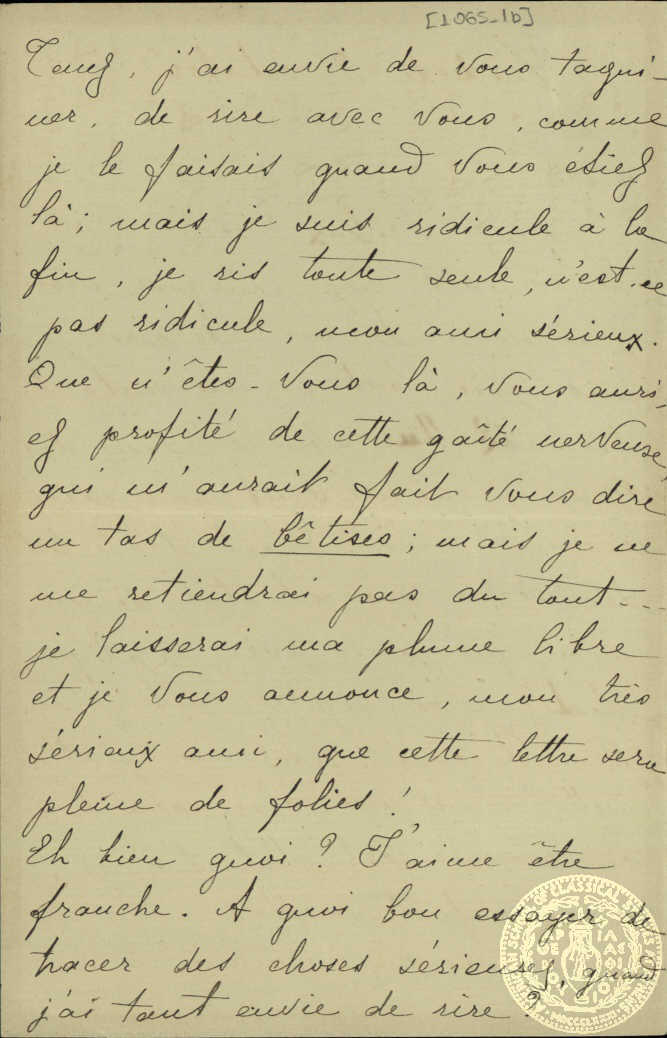 [1065-1b]
Tenez, j'ai envie de vous taqui-
ner, de rire avec vous, comme
je le faisais quand vous étiez
là; mais je suis ridicule à la
fin, je ris toute seule, n'est-ce
pas ridicule, mon ami sérieux.
Que n'êtes-vous là, vous auri-
ez profité de cette gaîté nerveuse,
qui m'aurait fait vous dire
un tas de bêtises; mais je ne
me retiendrai pas du tout...
je laisserai ma plume libre
et je vous annonce, mon très
sérieux ami, que cette lettre sera
pleine de folies!
Eh bien quoi? J'aime être
franche. A quoi bon essayer de
tracer des choses sérieuses, quand
j'ai tant envie de rire?